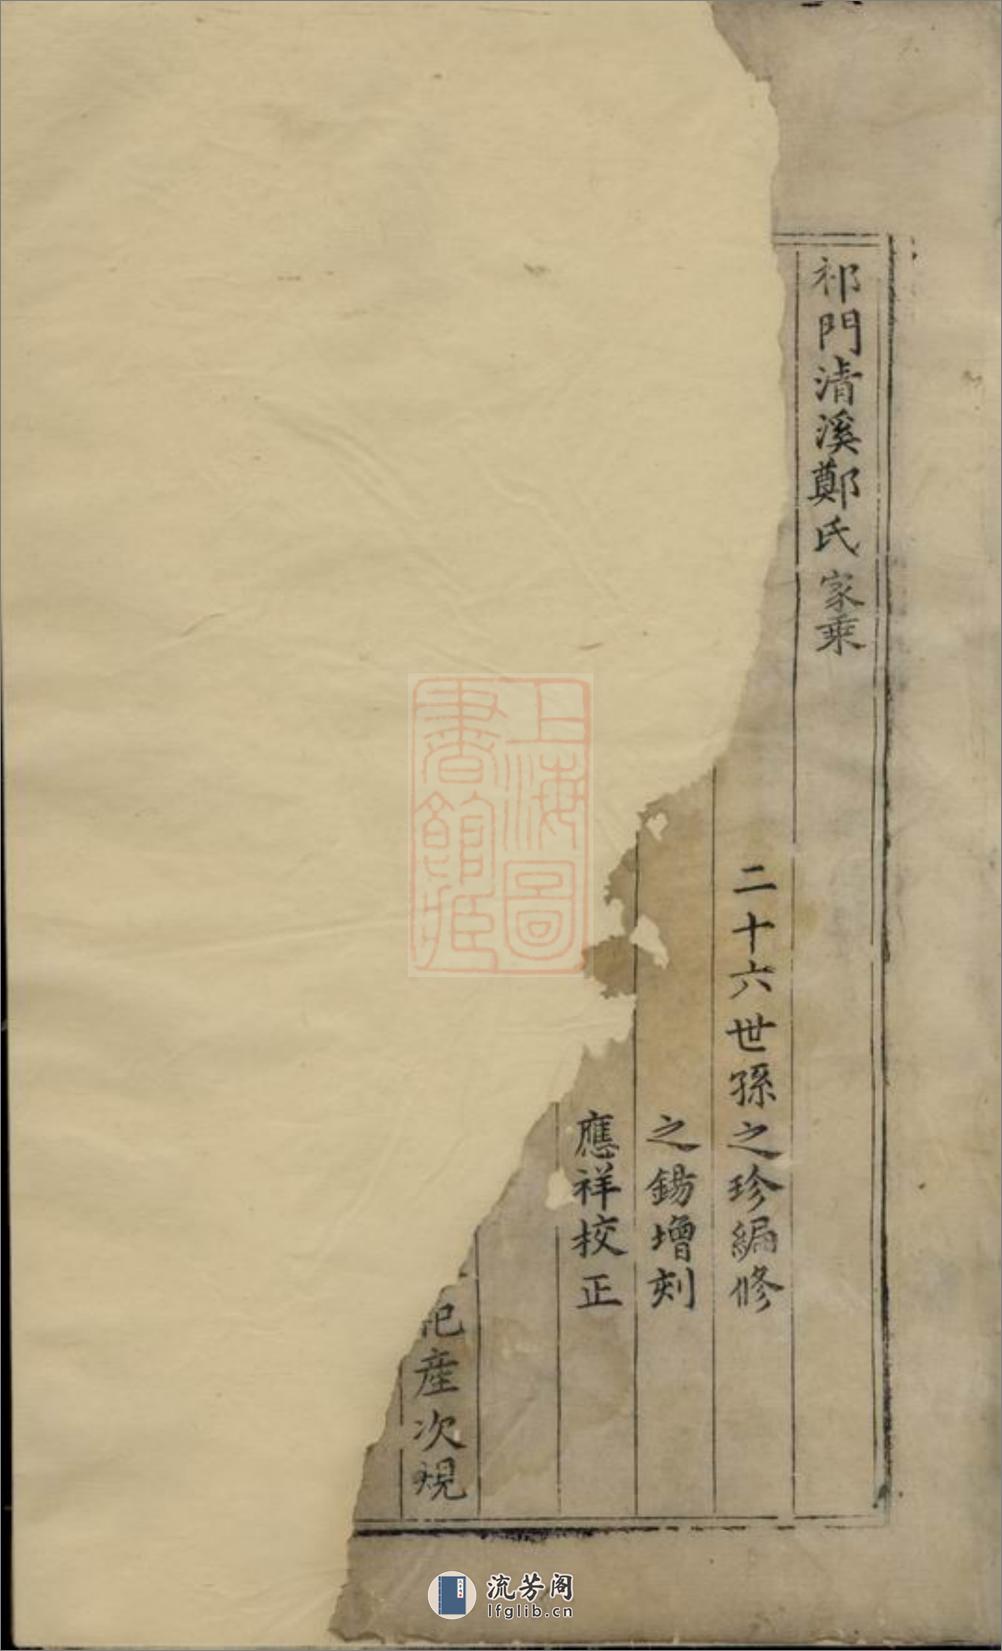 祁門清溪鄭氏家乘
二十六世孫之珍編修
之錫增刻
應祥校正
祀產次規
上海圖書館藏
流芳阁
lfglib.cn